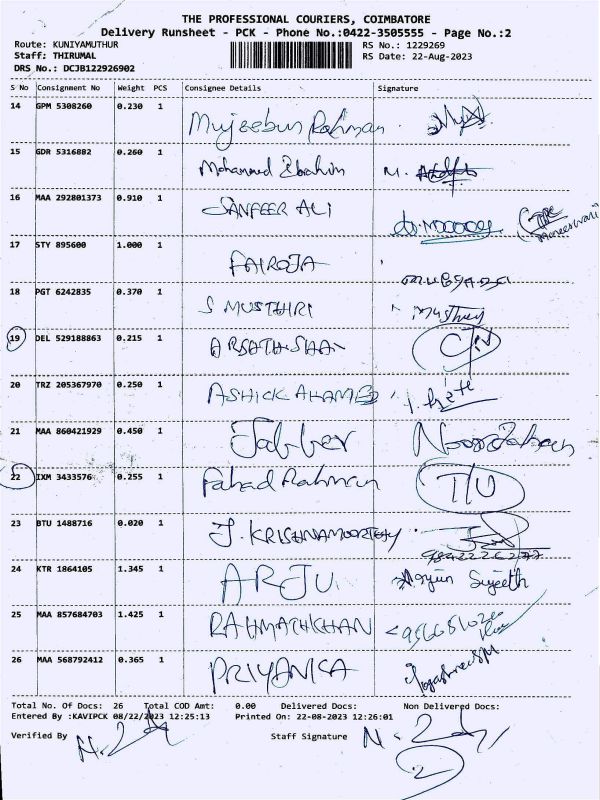 THE PROFESSIONAL COURIERS, COIMBATORE
Delivery Runsheet - PCK - Phone No.:0422-3505555 - Page No.:2
Route: KUNIYAMUTHUR RS No.: 1229269
Staff: THIRUMAL RS Date: 22-Aug-2023
DRS No.: DCJB122926902
S No Consignment No Weight PCS Consignee Details Signature
14 GPM 5308260 0.230 1
Mujeebur Rahman
15 GDR 5316882 0.260 1
Mohammed Ebrahim M.
16 MAA 292801373 0.910 1
SANFEER ALI
17 STY 895600 1.000 1
FAIROJA
18 PGT 6242835 0.370 1
S MUSTHRI
19 DEL 529188863 0.215 1
ARSATH SHAN
20 TRZ 205367970 0.250 1
ASHICK AHAMED
21 MAA 860421929 0.450 1
Jabber Noorjahan
22 IXM 3433576 0.255 1
Fahad Rahman T/U
23 BTU 1488716 0.020 1
J. KRISHNAMOORTHY
24 KTR 1864105 1.345 1
ARJU Arjun Sujeeth
25 MAA 857684703 1.425 1
RAHMATHKHAN
26 MAA 568792412 0.365 1
PRIYANKA
Total No. Of Docs: 26 Total COD Amt: 0.00 Delivered Docs: Non Delivered Docs:
Entered By :KAVIPCK 08/22/2023 12:25:13 Printed On: 22-08-2023 12:26:01
Verified By Staff Signature
2